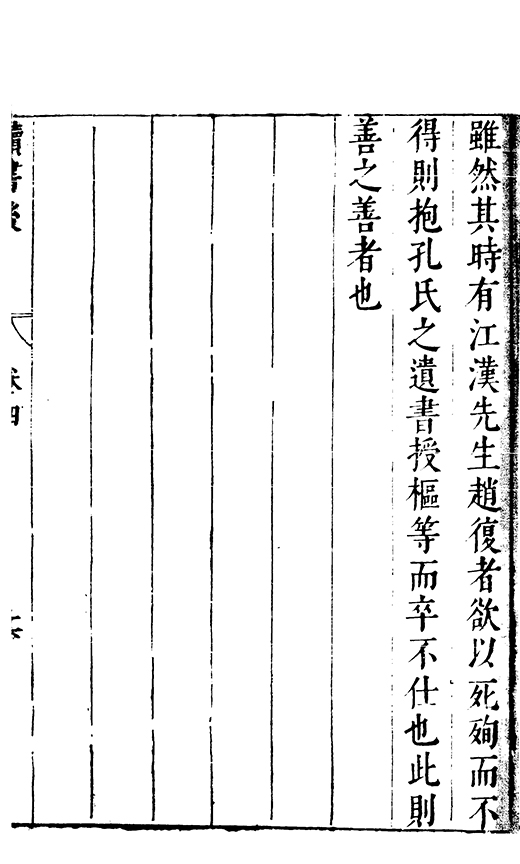 雖然其時有江漢先生趙復者欲以死殉而不
得則抱孔氏之遺書授樞等而卒不仕也此則
善之善者也
讀書後
卷四